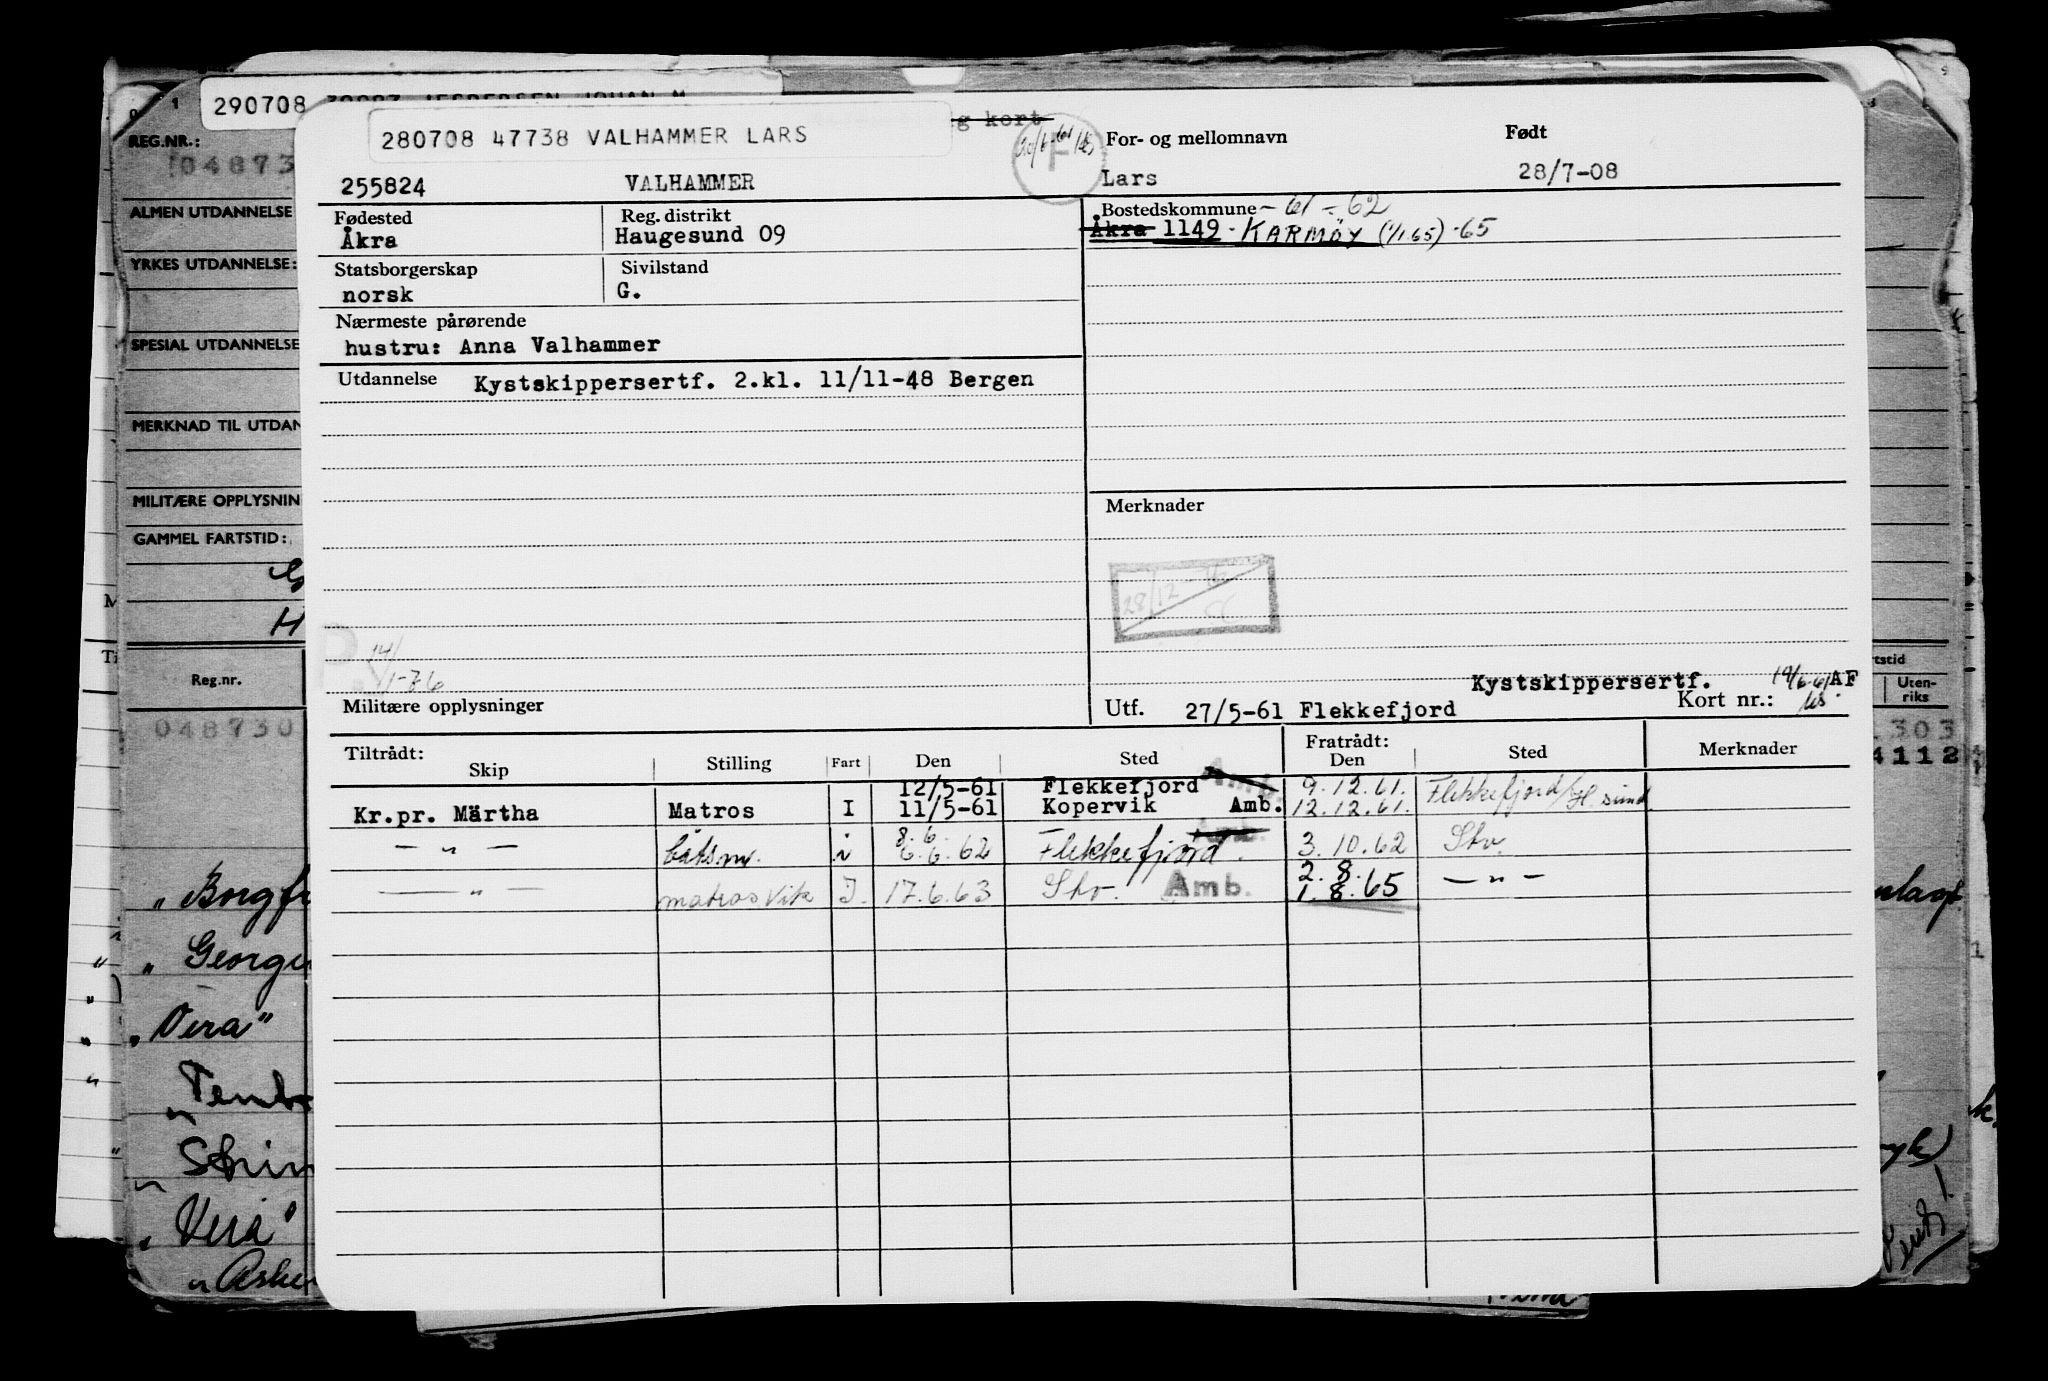 290708
280708 47738 VALHAMMER LARS
g kort
F
For- og mellomnavn
Født
255824 VALHAMMER
Lars
28/7-08
Fødested
Åkra
Reg. distrikt
Haugesund 09
Bostedskommune - 61 - 62
Åkra 1149 - KARMØY (1/1.65) -65
Statsborgerskap
norsk
Sivilstand
G.
Nærmeste pårørende
hustru: Anna Valhammer
Utdannelse Kystskippersertf. 2.kl. 11/11-48 Bergen
Merknader
28/12
P.
14/1-76
Militære opplysninger
Kystskippersertf. AF
Utf. 27/5-61 Flekkefjord
Kort nr.:
Tiltrådt:
Skip
Stilling
Fart
Den
Sted
Fratrådt:
Den
Sted
Merknader
12/5-61 Flekkefjord Amb. 9.12.61. Flekkefjord/H.sund
Kr.pr. Märtha Matros I 11/5-61 Kopervik Amb. 12.12.61.
8.6.
— " — båtsm. i 6.6.62 Flekkefjord. Amb. 3.10.62 Stv.
2.8.
— " — matros Vikar I. 17.6.63 Stv. Amb. 1.8.65 — " —
REG.NR.:
04873
ALMEN UTDANNELSE
YRKES UTDANNELSE:
SPESIAL UTDANNELSE
MERKNAD TIL UTDAN
MILITÆRE OPPLYSNIN
GAMMEL FARTSTID:
H
Reg.nr.
048730
" Borgfr
" George
" Vera"
" Vera"
" Asker
rtstid
Uten-
riks
303
4112